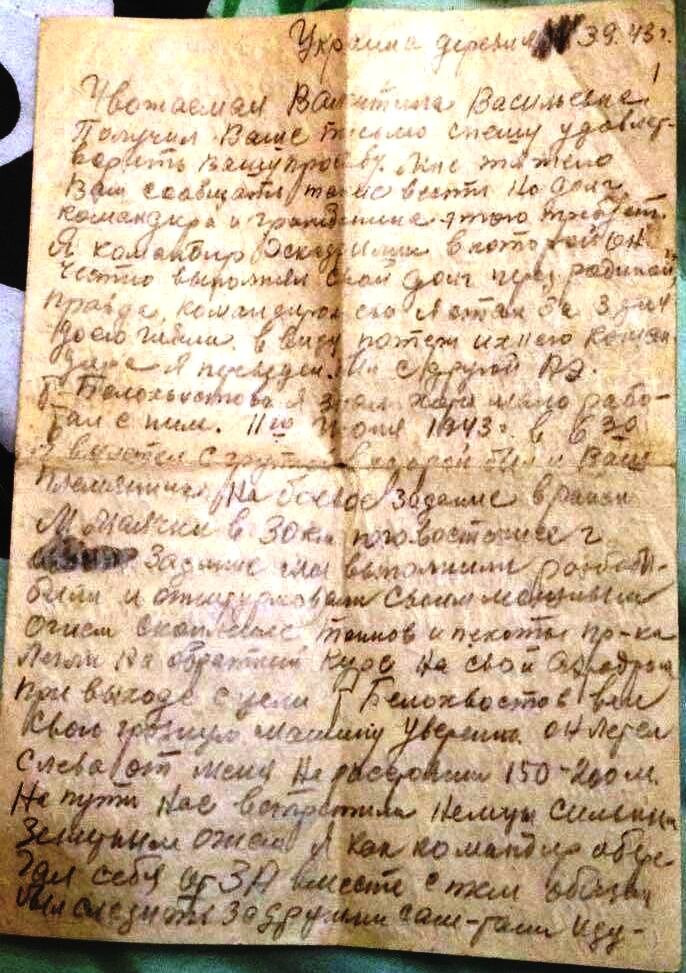 Украина деревня 3 9. 43 г.
1
Уважаемая Валентина Васильевна
Получил Ваше письмо спешу удовлет-
ворить Вашу прозьбу. Мне тяжело
Вам сообщать такие вести но долг
командира и гражданина этого требует.
Я командир Эскадрилии в которой он
честно выполнял свой долг перед родиной,
правда, командиром его я стал за 3 дня
до его гибели. в виду потери ихнего коман
дира я переведен с другой АЭ.
Г-Белохвостова я знал хотя мало рабо-
тал с ним. 11го Июля 1943 г. в 6 30
Я вылетел с группой в которой был и Ваш
племянник На боевое задание в район
М Маячки в 30 км юговосточнее г
Задание мы выполнили разбом-
били и отштурмовали своим мощным
огнем скопление танков и пехоты пр-ка
Легли на обратный курс на свой Аэродром
при выходе с цели Г Белохвостов вел
свою грозную машину уверенно. он летел
слева от меня На расстоянии 150-200 м.
На пути нас встретили немцы сильным
Зенитным огнем Я как командир обере
гал себя от ЗА вместе с тем обязан
был следить за другими сам-тами иду-